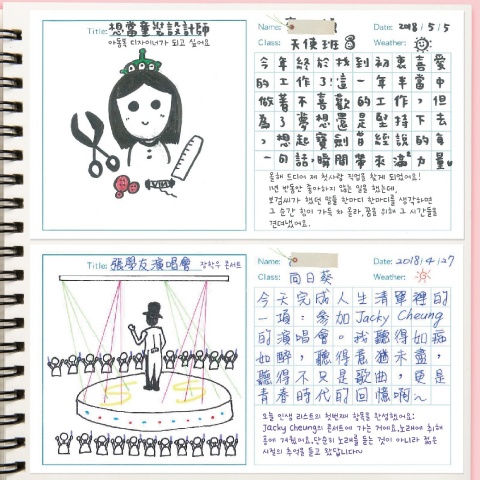 Title: 想當童裝設計師
아동복 디자이너가 되고 싶어요
Name:
Date: 2018/5/5
Class: 天使班
Weather:
今年終於找到初衷喜愛
的工作了!這一年半當中
做著不喜歡的工作,但
為了夢想還是堅持下去
,想起寶劍曾經說的每
一句話,瞬間帶來滿力量
올해 드디어 제 첫사랑 직업을 찾게 되었어요!
1년 반동안 좋아하지 않는 일을 했는데,
보검씨가 했던 말들 한마디 한마디를 생각하면
그 순간 힘이 가득 와 올라, 꿈을 위해 그 시간들을
견뎌냈어요.
Title: 張學友演唱會 장학우 콘서트
Name:
Date: 2018/4/27
Class: 向日葵
Weather:
今天完成人生清單裡的
一項:參加Jacky Cheung
的演唱會。我聽得如痴
如醉,聽得意猶未盡,
聽得不只是歌曲,更是
青春時代的回憶啊~
오늘 인생 리스트의 첫번째 항목을 완성했어요:
Jacky cheung의 콘서트에 가는 거에요.노래에 취해
흥에 겨웠어요.단순히 노래를 듣는 것이 아니라 젊은
시절의 추억을 듣고 왔답니다~